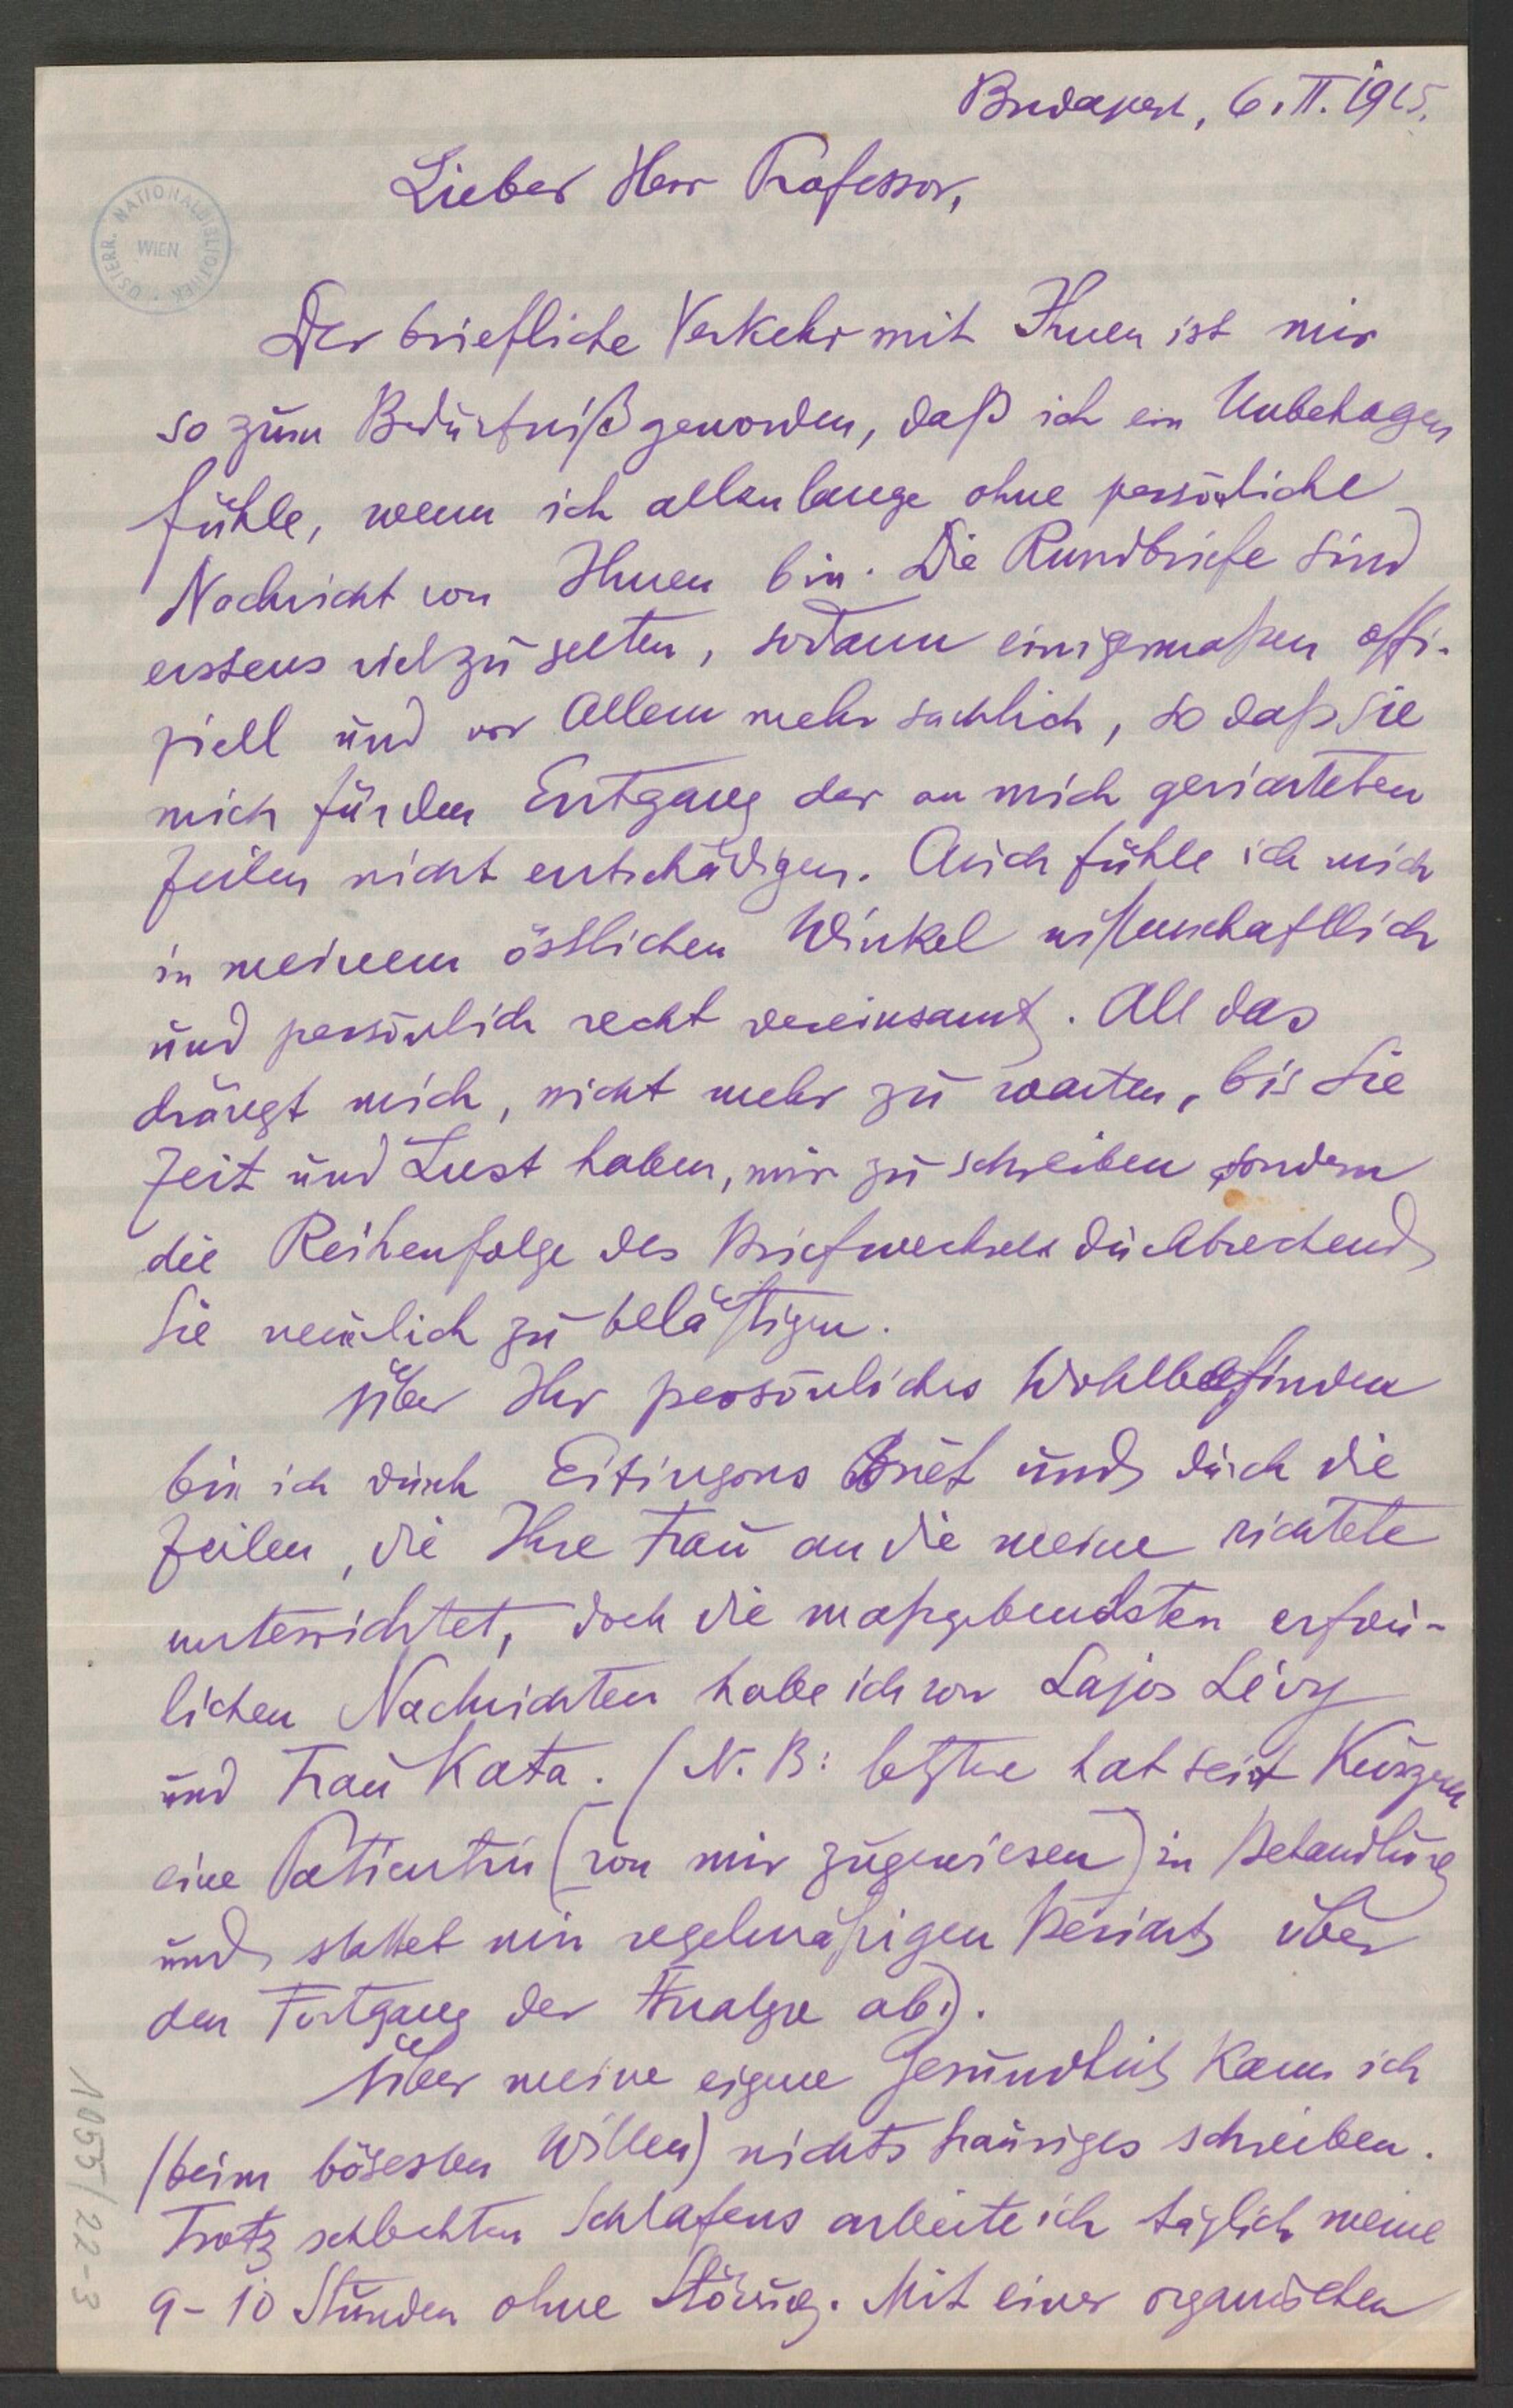 Budapest, 6. II. 1925.
Lieber Herr Professor,
ÖSTERR. NATIONALBIBLIOTHEK
WIEN
Der briefliche Verkehr mit Ihnen ist mir
so zum Bedürfniß geworden, daß ich ein Unbehagen
fühle, wenn ich allzulange ohne persönliche
Nachricht von Ihnen bin. Die Rundbriefe sind
erstens viel zu selten, sodann einigermaßen offi-
ziell und vor Allem mehr sachlich, so daß sie
mich für den Entgang der an mich gerichteten
Zeilen nicht entschädigen. Auch fühle ich mich
in meinem östlichen Winkel wissenschaftlich
und persönlich recht vereinsamt. All das
drängt mich, nicht mehr zu warten, bis Sie
Zeit und Lust haben, mir zu schreiben sondern
die Reihenfolge des Briefwechsels durchbrechend
Sie neuerlich zu belästigen.
Über Ihr persönliches Wohlbefinden
bin ich durch Eitingons Brief und durch die
Zeilen, die Ihre Frau an die meine richtete
unterrichtet, doch die maßgebendsten erfreu-
lichen Nachrichten habe ich von Lajos Lévy
und Frau Kata. (N. B: letztere hat seit Kurzem
eine Patientin (von mir zugewiesen) in Behandlung
und stattet mir regelmäßigen Bericht über
den Fortgang der Analyse ab.).
Über meine eigene Gesundheit kann ich
(beim bösesten Willen) nichts trauriges schreiben.
Trotz schlechten Schlafens arbeite ich täglich meine
9-10 Stunden ohne Störung. Mit einer organischen
1055/22-3